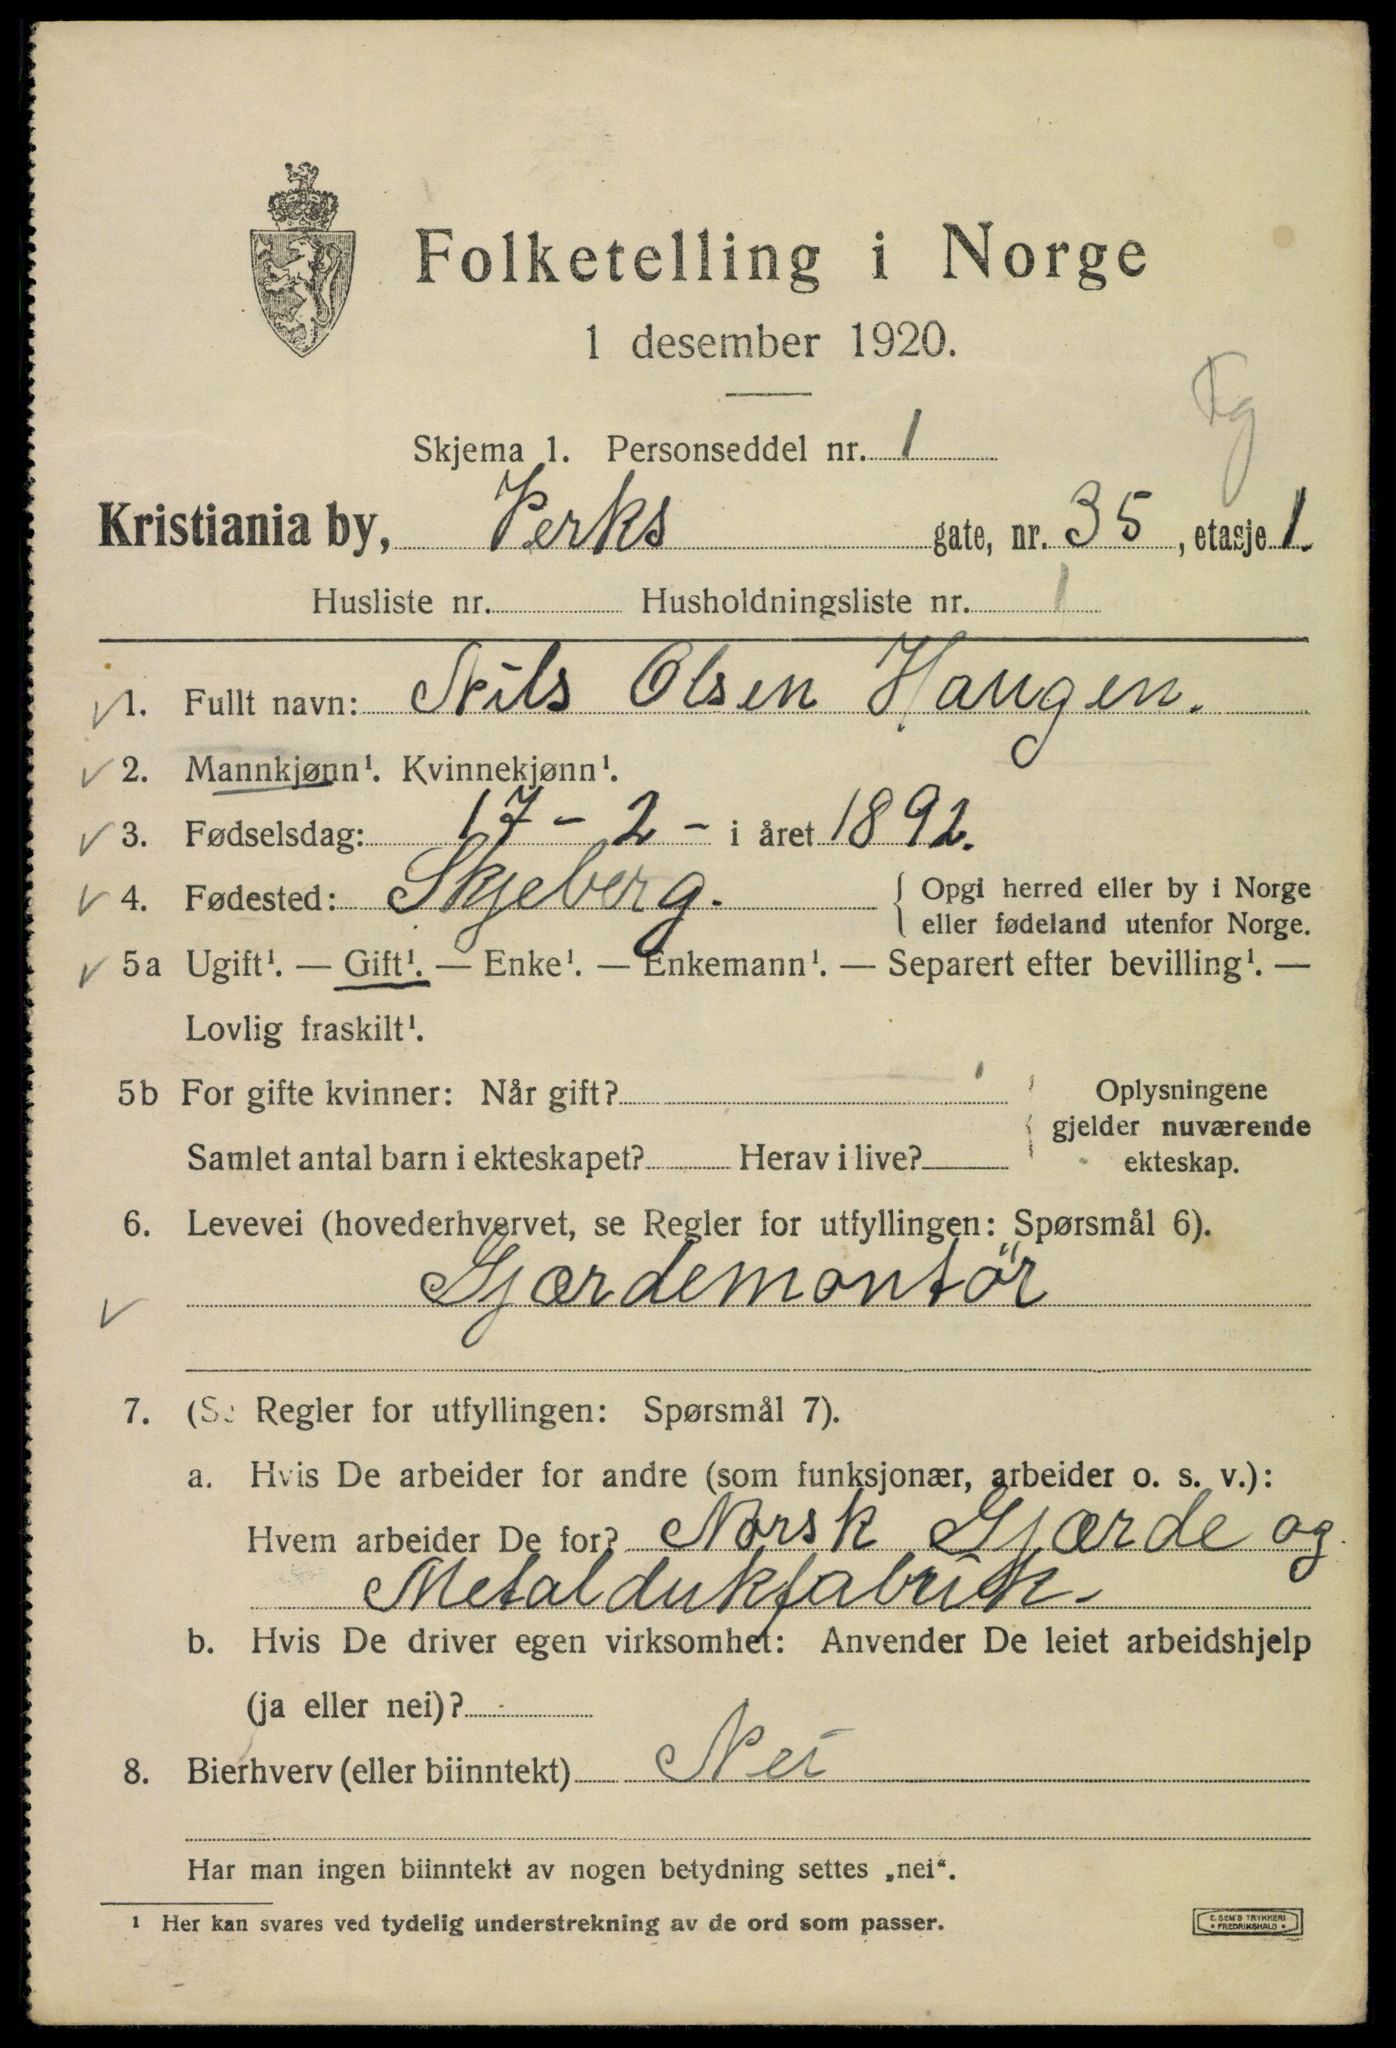 Folketelling i Norge
1 desember 1920.
Skjema 1. Personseddel nr. 1
Kristiania by, Verks gate, nr. 35, etasje 1.
Husliste nr. Husholdningsliste nr. 1
1. Fullt navn: Nils Olsen Haugen.
2. Mannkjønn¹. Kvinnekjønn¹.
3. Fødselsdag: 17 - 2 - i året 1892.
4. Fødested: Skjeberg. { Opgi herred eller by i Norge
eller fødeland utenfor Norge.
5a Ugift¹. — Gift¹. — Enke¹. — Enkemann¹. — Separert efter bevilling¹. —
Lovlig fraskilt¹.
5b For gifte kvinner: Når gift? Oplysningene
gjelder nuværende
Samlet antal barn i ekteskapet? Herav i live? ekteskap.
6. Levevei (hovederhvervet, se Regler for utfyllingen: Spørsmål 6).
Gjærdemontör
7. (Se Regler for utfyllingen: Spørsmål 7).
a. Hvis De arbeider for andre (som funksjonær, arbeider o. s. v.):
Hvem arbeider De for? Norsk Gjærde og
Metaldukfabrik.
b. Hvis De driver egen virksomhet: Anvender De leiet arbeidshjelp
(ja eller nei)?
8. Bierhverv (eller biinntekt) Nei
Har man ingen biinntekt av nogen betydning settes „nei“.
¹ Her kan svares ved tydelig understrekning av de ord som passer.
E. SEM'S TRYKKERI
* FREDRIKSHALD *